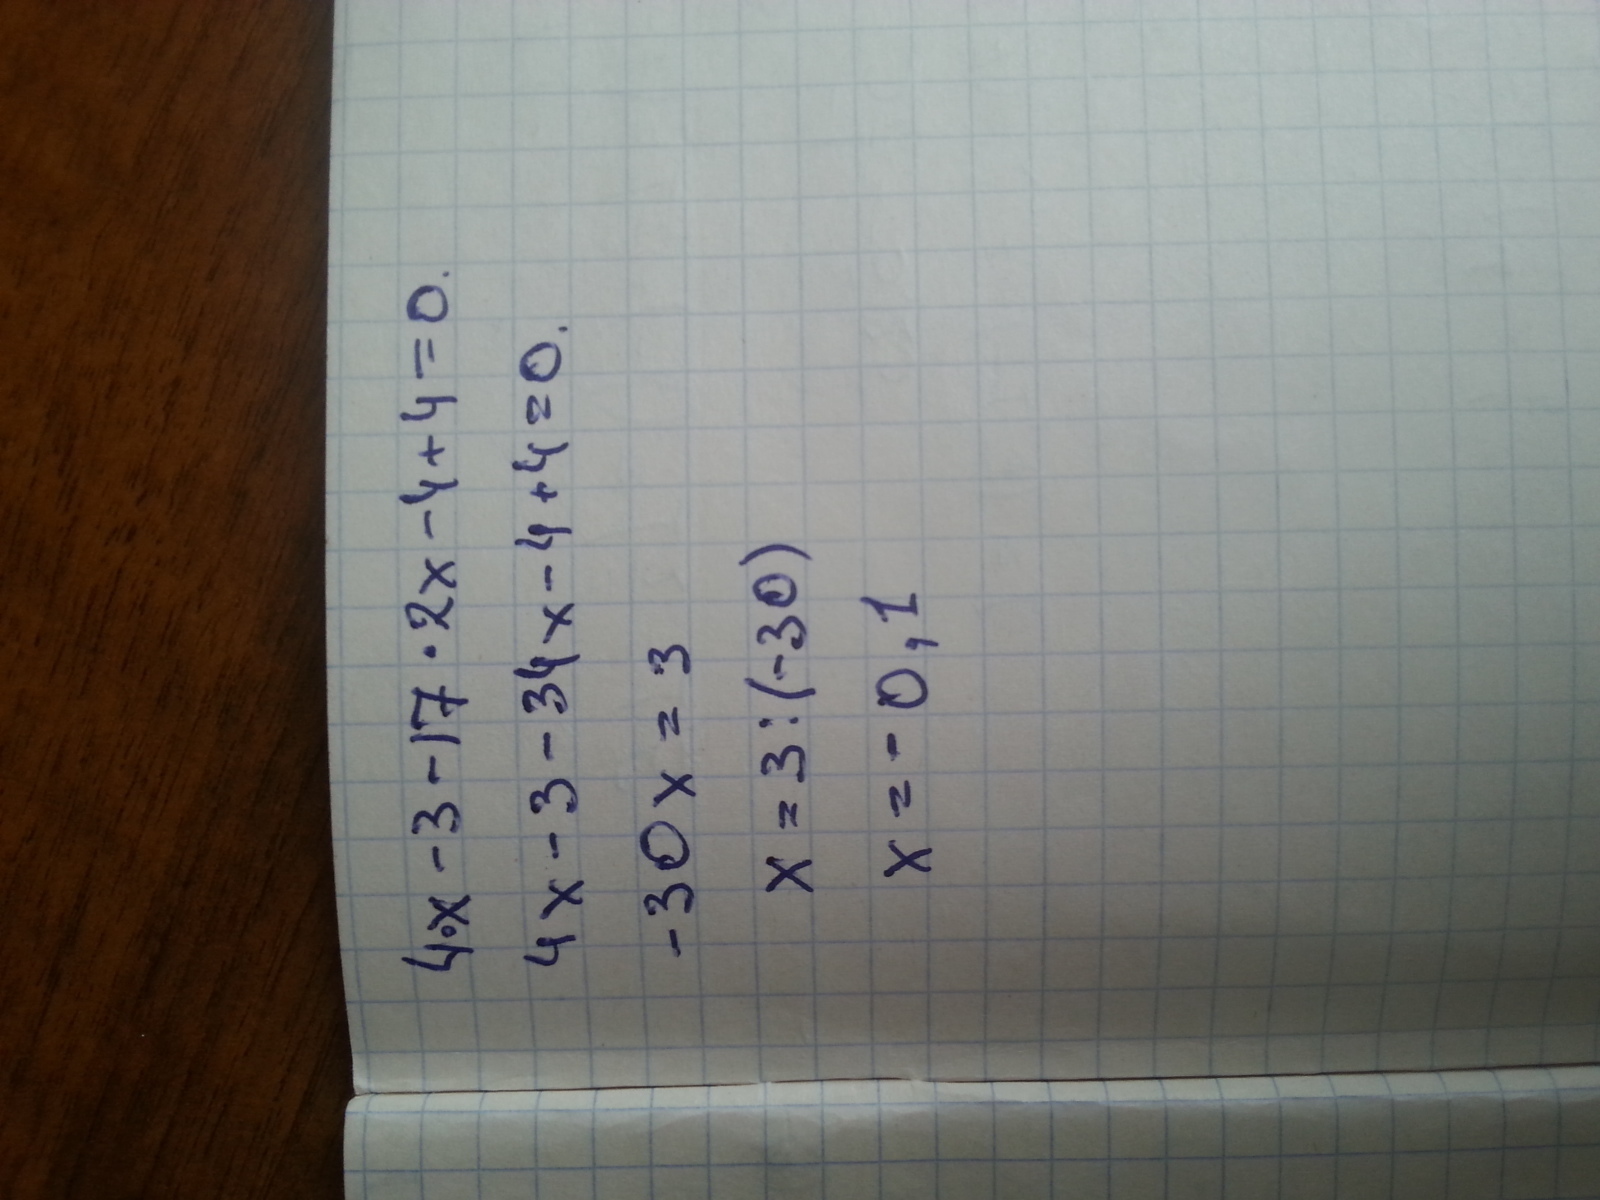 4·x-3-17·2x-4+4=0.
4x-3-34x-4+4=0.
-30x=3
x=3:(-30)
x=-0,1